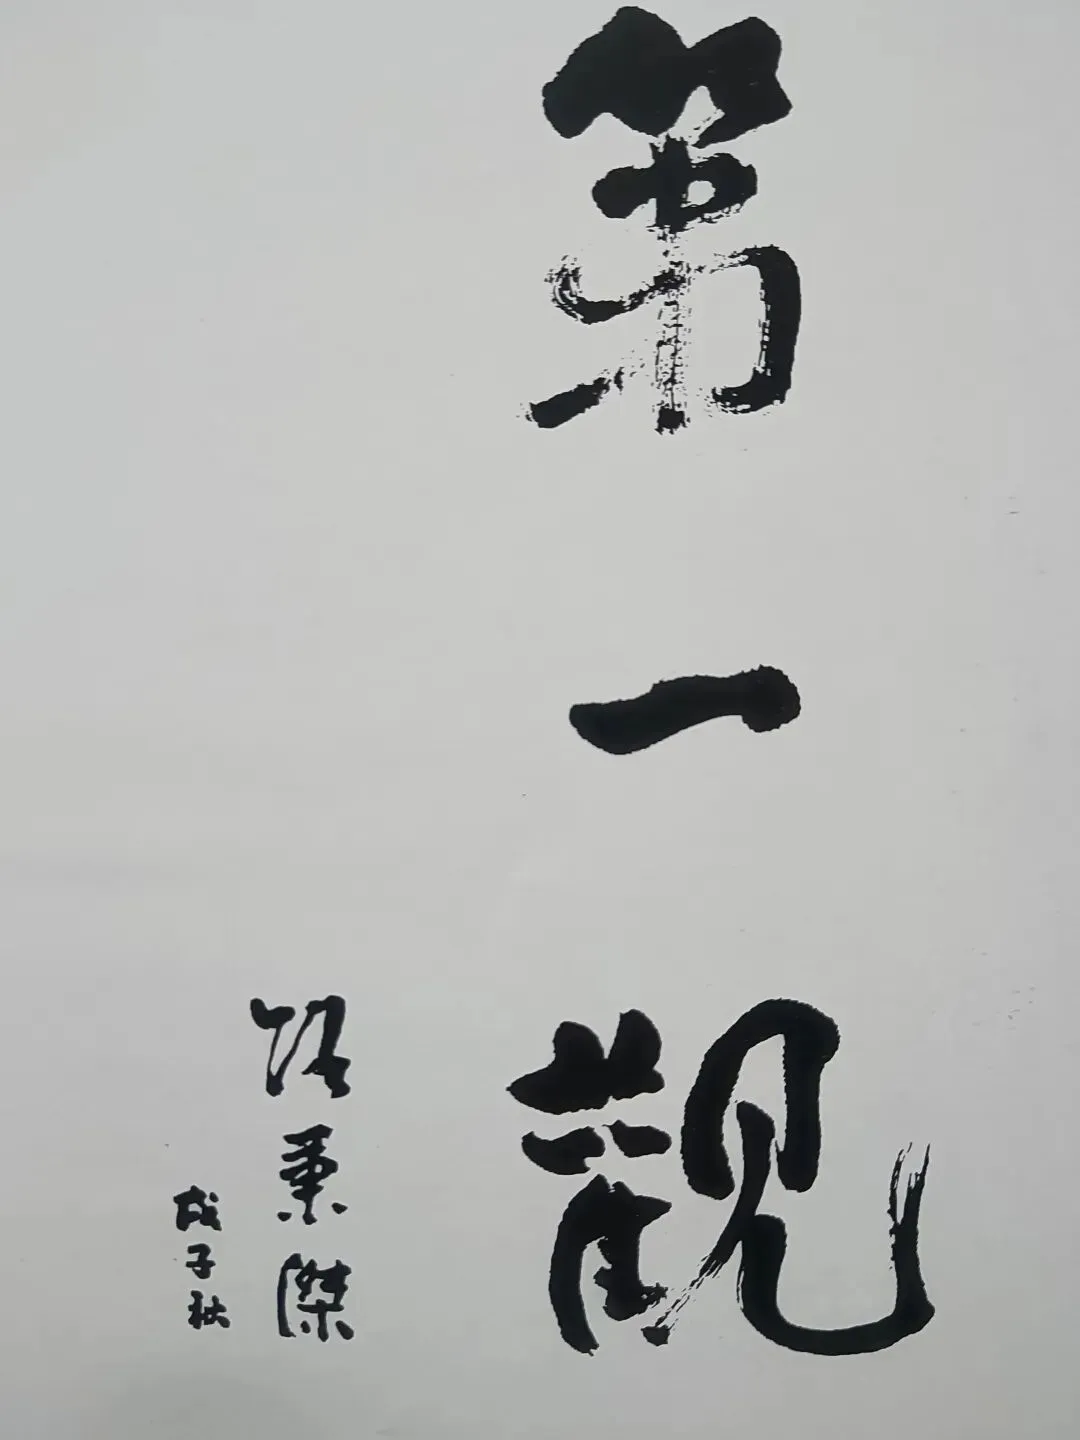 第一觀
張秉傑
戊子秋